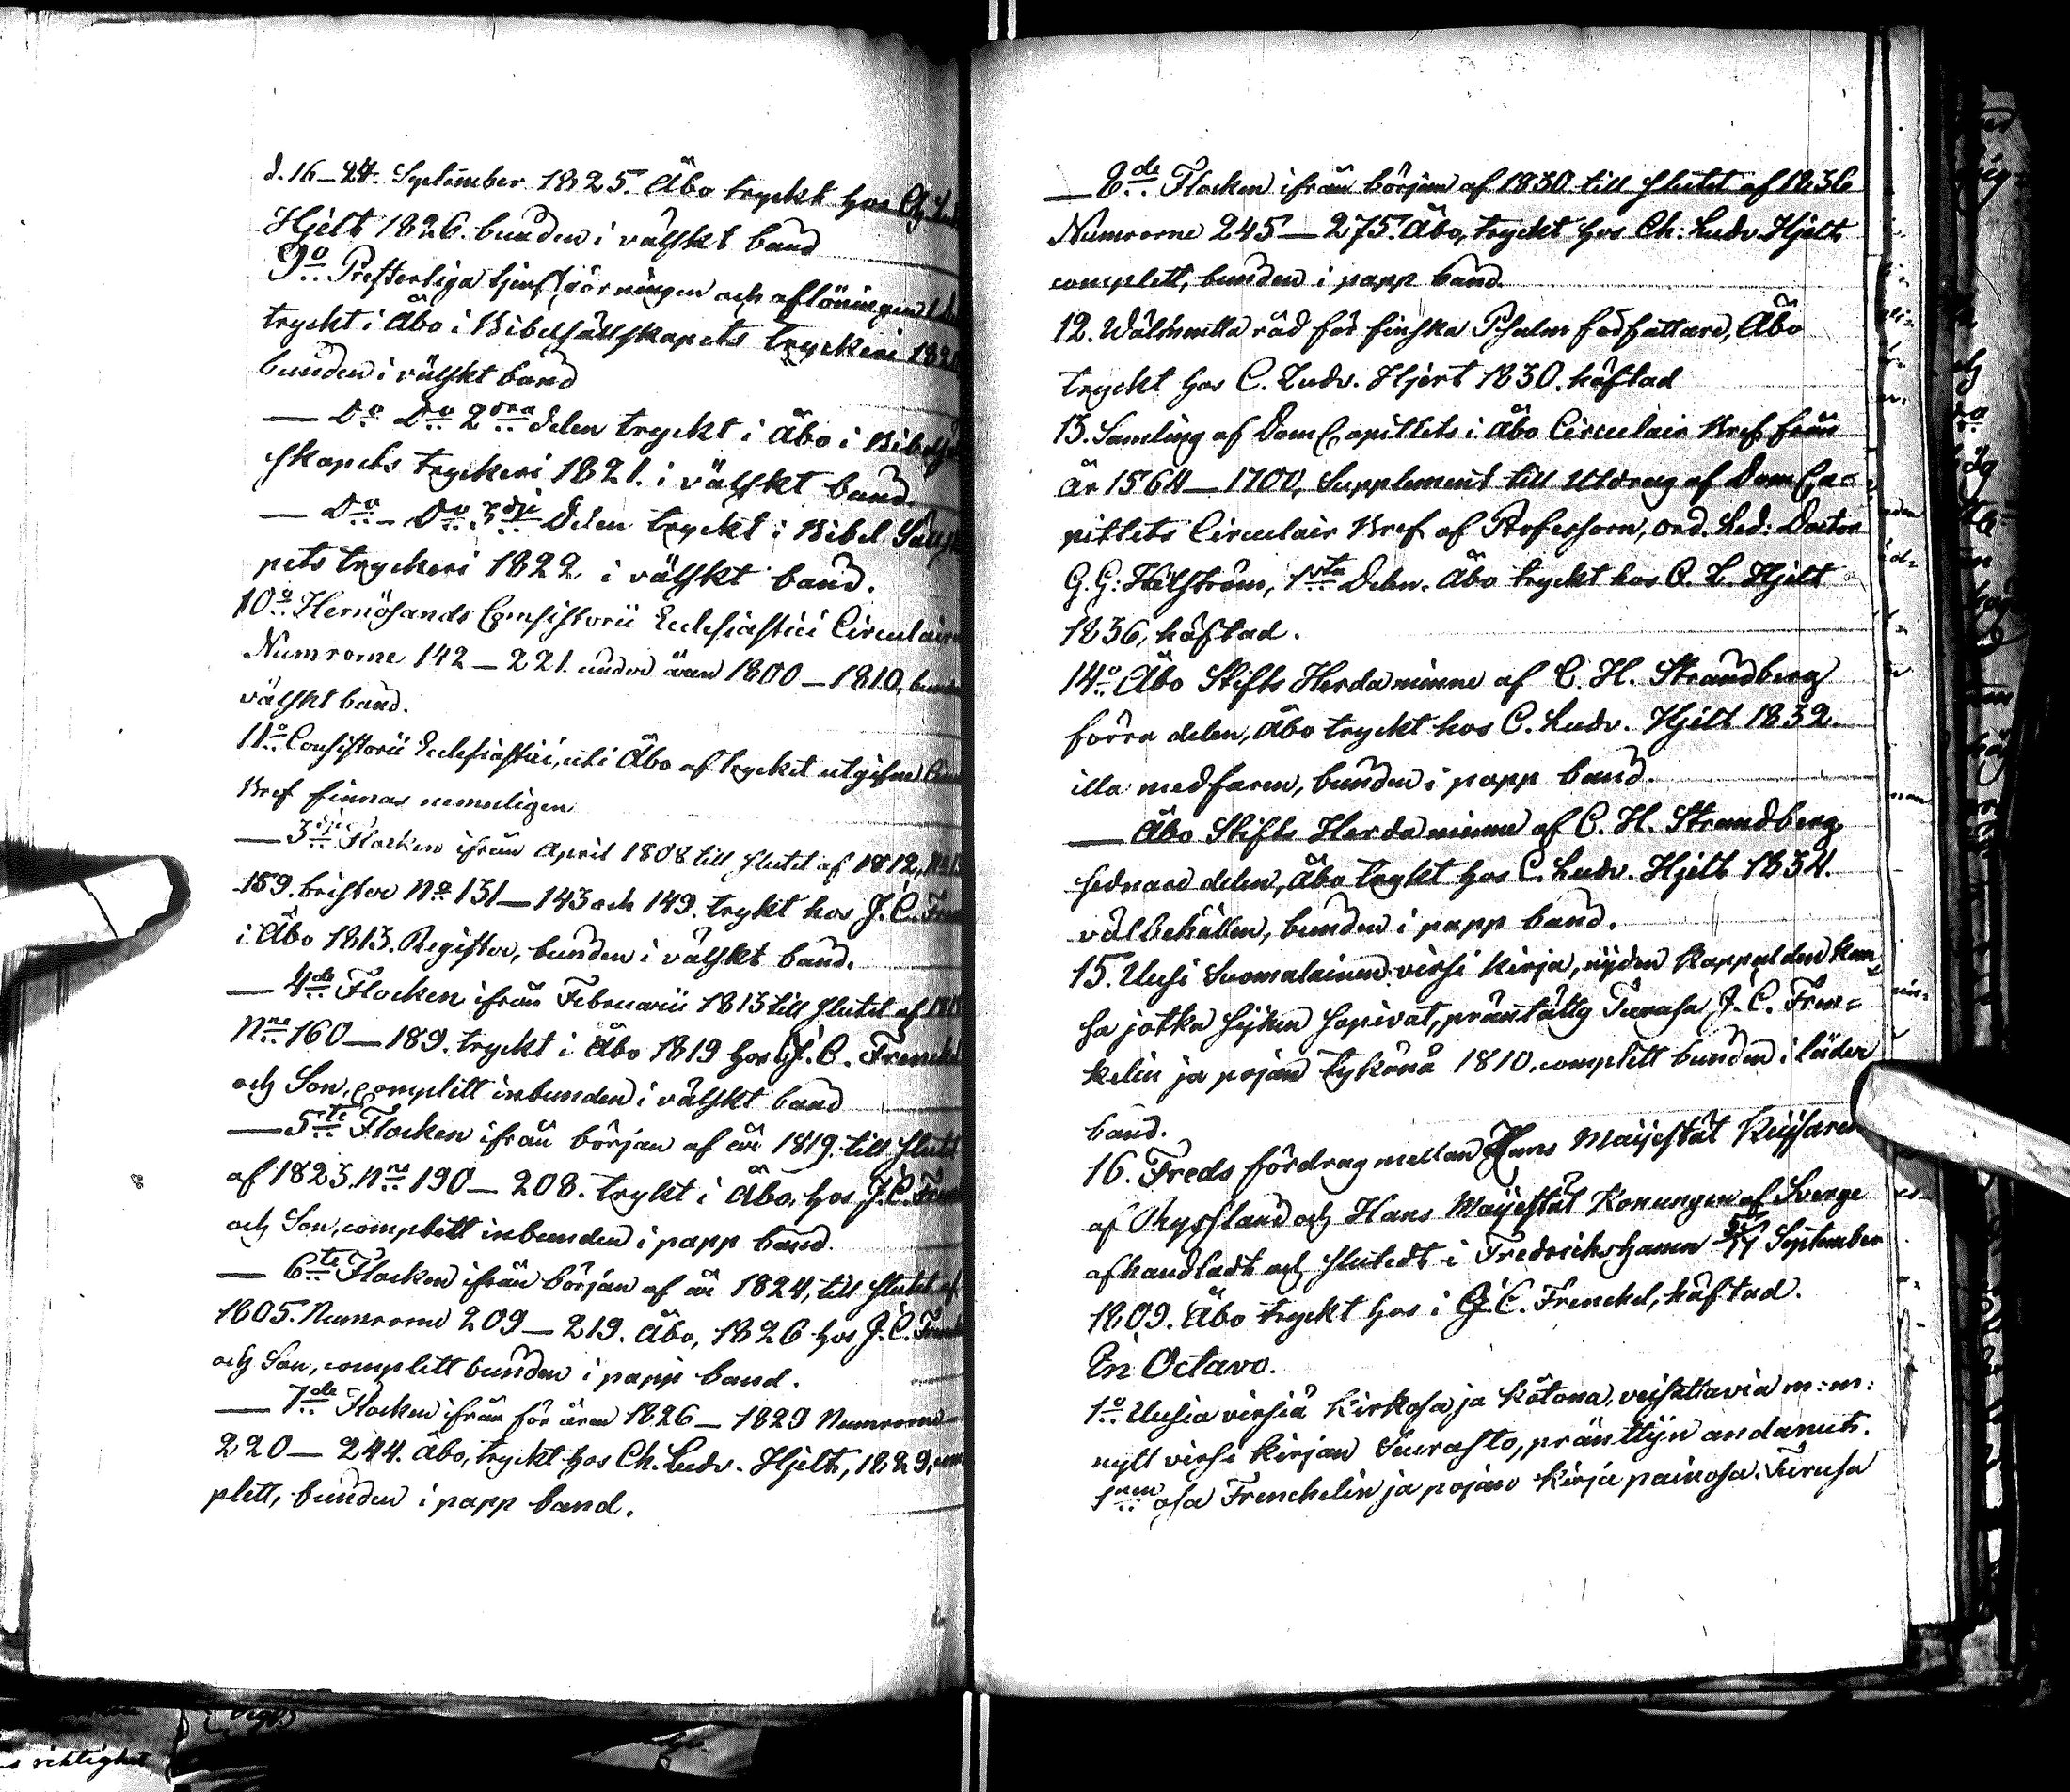 d. 16–24. September 1825. Åbo tryckt hos Ch. L.
Hjelt 1826. bunden i välskt band
9o Presterliga tjenstgörningen och aflöningen
tryckt i Åbo i Bibelsällskapets tryckeri 182
bunden i välskt band
— Do Do 2dra delen tryckt i Åbo i Bibelsäl
skapets tryckeri 1821. i välskt band.
— Do – Do 3dje Delen tryckt i Bibel Sällsk
pets tryckeri 1822 i välskt band.
10o Hernösands Consistorii Ecclesiastici Circulair
Numrorne 142 – 221. under åren 1800 – 1810,
välskt band.
11o Consistorii Ecclesiastici, uti Åbo af trycket utgifne
Bref finnas nemnligen
— 3dje Flocken ifrån April 1808 till slutet af 1812,
159. brister No 131 — 143 och 149. trykt hos J. C. Fren
i Åbo 1813. Register, bunden i välskt band.
— 4de Flocken ifrån Februarii 1813 till slutet af 181
Nro 160 — 189. tryckt i Åbo 1819 hos J. C. Frenckel
och Son, complett inbunden i välskt band
— 5te Flocken ifrån början af år 1819. till slutet
af 1823. Nro 190 – 208. trykt i Åbo, hos J. C. Fren
och Son, complett inbunden i papp band.
— 6te Flocken ifrån början af år 1824, till slutet af
1805. Numrorne 209 – 219. Åbo, 1826 hos J. C. Fren
och Son, complett bunden i papp band.
— 7de Flocken ifrån för åren 1826 – 1829 Numrorne
220 – 244. Åbo, tryckt hos Ch. Ludv. Hjelt, 1829, com
plett, bunden i papp band.
— 8de Flocken ifrån början af 1830 till slutet af 1836
Numrorne 245 — 275. Åbo, tryckt hos Ch. Ludv. Hjelt
complett, bunden i papp band.
12. Wälmenta råd för finska Psalm författare, Åbo
tryckt hos C. Ludv. Hjert 1830. häftad
13. Samling af Dom Capitlets i Åbo Circulair Bref från
år 1564 — 1700, Supplement till Utdrag af Dom Ca=
pitlets Circulair Bref af Professorn, ord. Led: Doctor
G. G: Hälström, 1sta Delen. Åbo tryckt hos C. L. Hjelt
1836, häftad.
14o Åbo Stifts Herdaminne af C. H. Strandberg
förra delen, Åbo tryckt hos C. Ludv. Hjelt 1832.
illa medfaren, bunden i papp band.
— Åbo Stifts Herdaminne af C. H. Strandberg
sednare delen, Åbo trykt hos C. Ludv. Hjelt 1834.
välbehållen, bunden i papp band.
15. Uusi Suomalainen virsi kirja, nijden kappalden kan=
sa jotka sijhen sopivat, präntätty Turusa J. C. Fren=
kelin ja pojan tykönä 1810, complett bunden i läder
band.
16. Freds fördrag mellan Hans Maijestät Kejsaren
af Ryssland och Hans Maijestät Konungen af Sverge
afhandladt och slutedt i Fredrikshamn September
1809. Åbo tryckt hos i J. C. Frenckel, häftad.
In Octavo.
1o Uusia virsiä Kirkosa ja Kotona, veisattavia m: m:
nytt virsi kirjan Seurasto, pränttijn andanut.
1nen osa Frenckelin ja pojan kirja painosa. Turusa